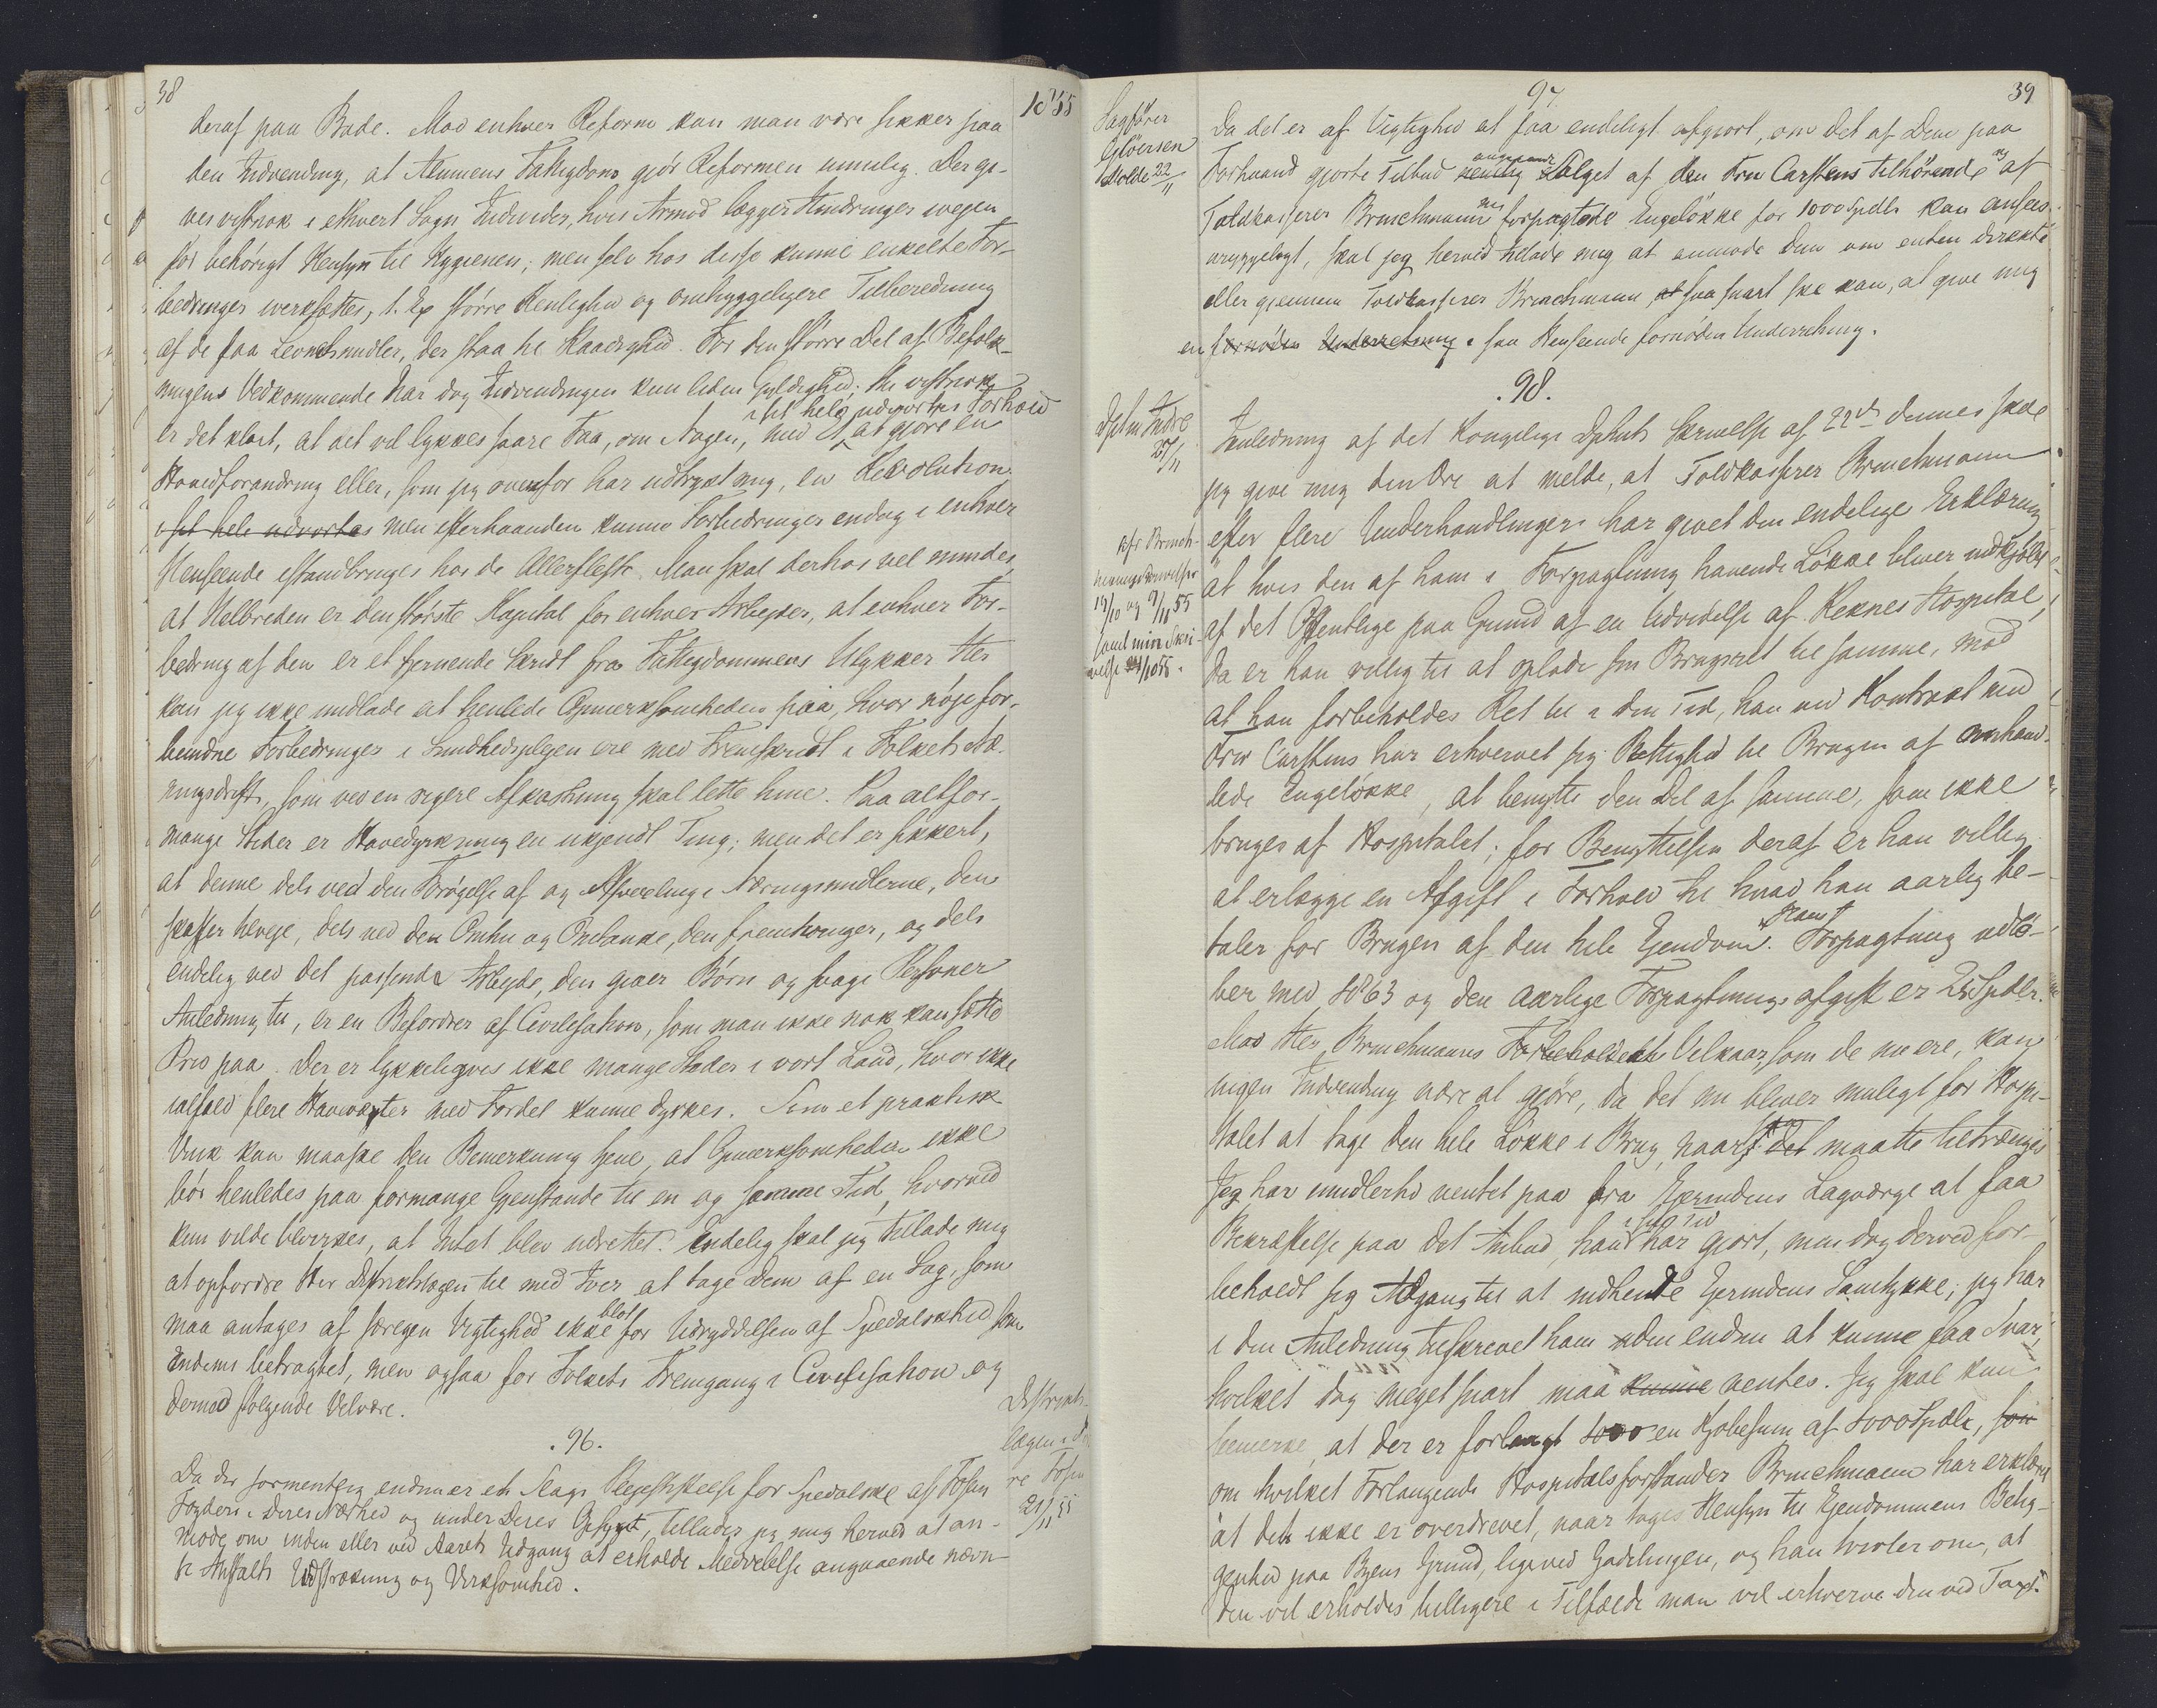 38
1855
deraf paa Bade. Mod enhver Reform kan man være sikker paa
den Indvending, at Almuens Fattigdom gjør Reformen umulig. Der gi-
ves vistnok i ethvert Sogn Individer, hvis Armod lægger Hindringer iveien
for behørigt Hensyn til Hygienen; men selv hos disse kunne enkelte For-
bedringer iverksættes, t. Ex større Renlighed og omhyggeligere Tilberedning
af de faa Levnetsmidler, der staa til Raadighed. For den større Del af Befolk-
ningens Vedkommende har dog Indvendingen kun liden Gyldighed; thi vistnok
i sit hele udvortes Forhold
er det klart, at det vil lykkes saare Faa, om Nogen, med Et at gjøre en
Hovedforandring eller, som jeg ovenfor har udtrykt mig, en Revolution
i sit hele udvortes men efterhaanden kunne Forbedringer endog i enhver
Henseende istandbringes hos de Allerfleste. Man skal derhos vel mindes,
at Helbreden er den største Kapital for enhver Arbeyder, at enhver For-
bedring af den er et fjernende Skridt fra Fattigdommens Ulykker. Her
kan jeg ikke undlade at henlede Opmerksomheden paa, hvor nøje for-
bundne Forbedringer i Sundhedsplejen ere med Fremskridt i Folkets Næ-
ringsdrift, som ved en rigere Afkastning skal lette hine. Paa altfor-
mange Steder er Havedyrkning en ukjendt Ting; men det er sikkert,
at denne dels ved den Forøgelse af og Afvexling i Næringsmidlerne, den
skaffer tilveje, dels ved den Omhu og Omtanke, den fremtvinger, og dels
endelig ved det passende Arbeyde, den giver Børn og svage Personer
Anledning til, er en Befordrer af Civilisation, som man ikke nok kan sætte
Pris paa. Der er lykkeligvis ikke mange Steder i vort Land, hvor ikke
ialfald flere Havevæxter med Fordel kunne dyrkes. Som et praktisk
Vink kan maaske den Bemerkning tjene, at Opmerksomheden ikke
bør henledes paa formange Gjenstande til en og samme Tid, hvorved
kun vilde bevirkes, at Intet blev udrettet. Endelig skal jeg tillade mig
at opfordre Her Distriktslægen til med Iver at tage Dem af en Sag, som
maa antages af særegen Vigtighed ikke blot for Udryddelsen af Spedalskhed som
Endemi betragtet, men ogsaa for Folkets Fremgang i Civilisation og
dermed følgende Velvære.
.96.
Distrikts-
lægen i
re Fosen
21/11 55
Da der formentlig endnu er et Slags Plejestiftelse for Spedalske af Fosen
Fogderi i Deres Nærhed og under Deres Opsyn, tillader jeg mig herved at an-
mode om inden eller ved Aarets Udgang at erholde Meddelelse angaaende nævn-
te Anstalts Udstrækning og Virksomhed.
97.
39
Sagfører
Gløersen
Molde 22/11
Da det er af Vigtighed at faa endeligt afgjort, om det af Dem paa
Forhaand gjorte Tilbud angaaende Salget af den Fru Carstens tilhørende og af
Toldkasserer Brinchmann forpagtede Engeløkke for 1000 Spdlr kan ansees
uryggeligt, skal jeg herved tillade mig at anmode Dem om enten direkte
eller gjennem Toldkasserer Brinchmann, at saa snart ske kan, at give mig
en fornøden Underretning i saa Henseende fornøden Underretning.
.98.
Dptm Indre
27/11
Anledning af det Kongelige Dpts Skrivelse af 22de dennes skal
jeg give mig den Ære at melde, at Toldkasserer Brinchmann
efter flere Underhandlinger har givet den endelige Erklæring
at hvis den af ham i Forpagtning havende Løkke bliver indkjøbt
af det Offentlige paa Grund af en Udvidelse af Reknes Hospital,
da er han villig til at oplade sin Brugsret til samme, mod
at han forbeholdes Ret til i den Tid, han ved Kontrakt med
Fru Carstens har erhvervet sig Rettighed til Brugen af omhand-
lede Engeløkke, at benytte den Del af samme, som ikke
bruges af Hospitalet; for Benyttelsen deraf er han villig
at erlægge en Afgift i Forhold til hvad han aarlig be-
taler for Brugen af den hele Ejendom. Hans Forpagtning udlø-
ber med 1863 og den aarlige Forpagtningsafgift er 25 Spdlr.
Mod Her Brinchmanns Forbeholdelse Velkaar, som de nu ere, kan
ingen Indvending være at gjøre, da det nu bliver muligt for Hospi-
talet at tage den hele Løkke i Brug, naar det maatte tiltrænges
Jeg har imidlertid ventet paa fra Ejerindens Lagværge at faa
Bekræftelse paa det Anbud, han i sin Tid har gjort, men dog derved for-
beholdt sig Adgang til at indhente Ejerindens Samtykke; jeg har
i den Anledning tilskrevet ham uden endnu at kunne faa Svar,
hvilket dog meget snart maa kunne ventes. Jeg skal kun
bemerke, at der er forlangt 1000 en Kjøbesum af 1000 Spdlr, som
om hvilket Forlangende Hospitalsforstander Brinchmann har erklæret
at det ikke er overdrevet, naar tages Hensyn til Ejendommens Belig-
genhed paa Byens Grund, ligeved Gadelinjen, og han tvivler om, at
den vil erholdes billigere i Tilfælde man vil erhverve den ved Taxt.